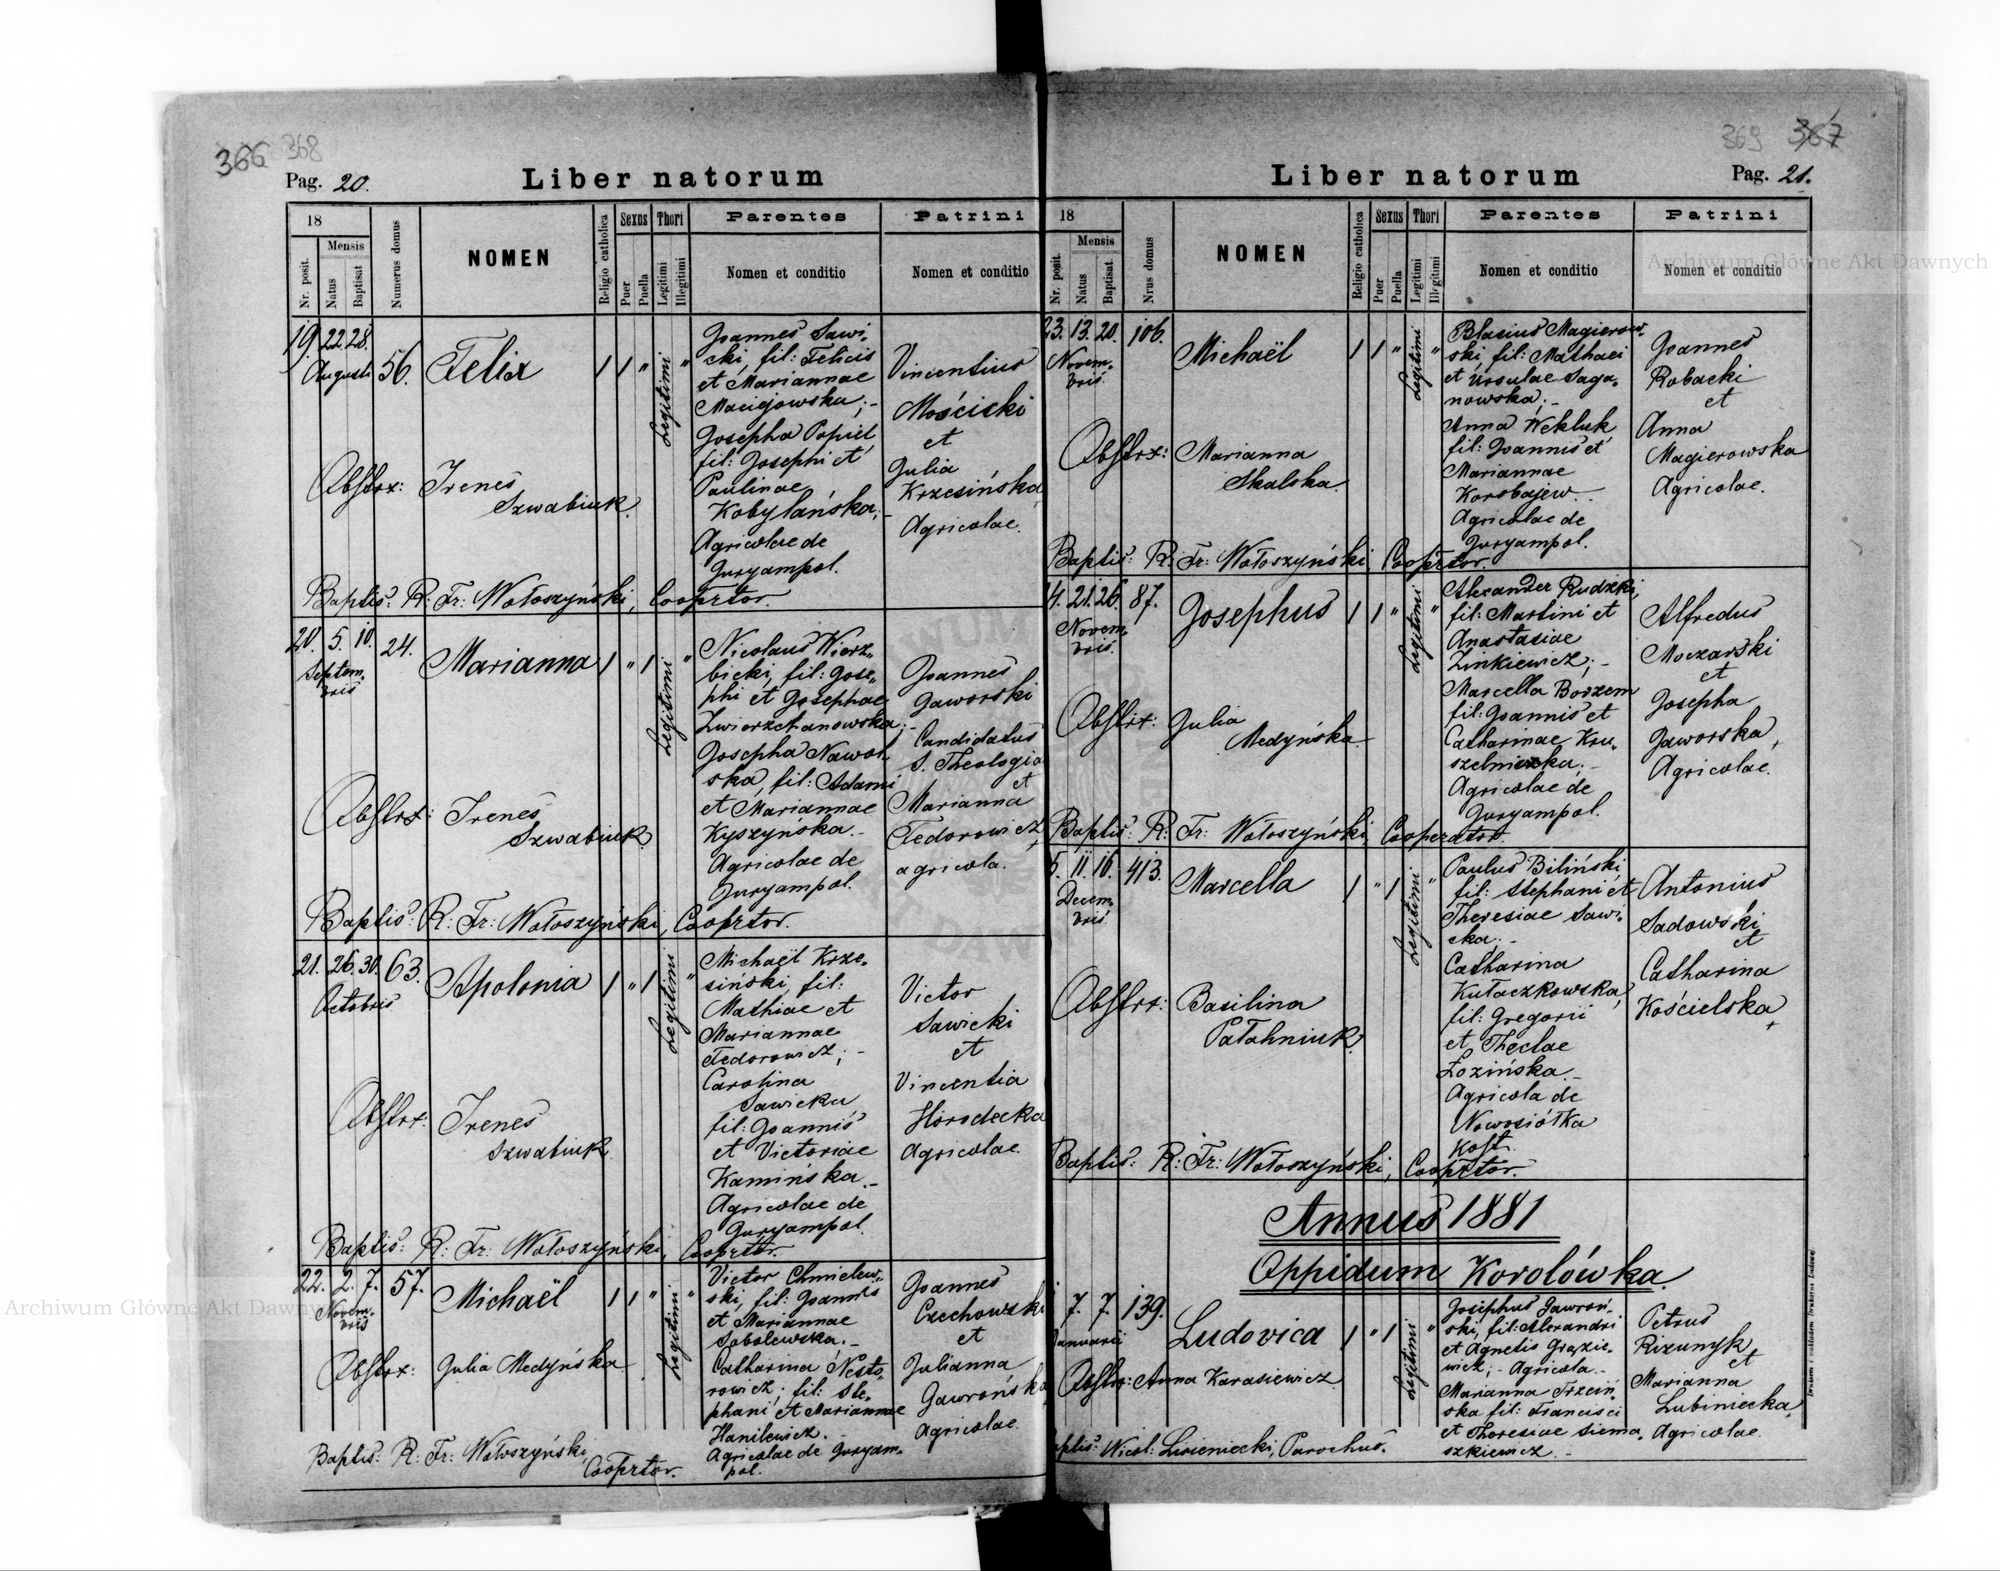 366 368
Pag. 20.
Liber natorum
18
Mensis
Nr. posit.
Natus
Baptisat
Numerus domus
NOMEN
Religio catholica
Sexus
Puer
Puella
Thori
Legitimi
Illegitimi
Parentes
Nomen et conditio
Patrini
Nomen et conditio
19. 22. 28.
Augusti
56.
Felix
1 1 "
Legitimi "
Joannes Sawi-
cki, fil: Felicis
et Mariannae
Maciejowska;-
Josepha Popiel
fil: Josephi et
Paulinae
Kobylańska;-
Agricolae de
Juryampol.
Vincentius
Mościcki
et
Julia
Krzesińska
Agricolae.
Obstrx: Irenes
Szwabiuk.
Baptis: R: Fr: Wołoszyński, Cooprtor.
20. 5. 10.
Septem-
bris
24.
Marianna
1 " 1
Legitimi "
Nicolaus Wierz-
bicki, fil: Jose-
phi et Josephae
Zwierzchanowska;-
Josepha Nawol-
ska, fil: Adami
et Mariannae
Kyszyńska.-
Agricolae de
Juryampol.
Joannes
Jaworski
Candidatus
S. Theologia
et
Marianna
Fedorowicz,
agricola.
Obstrx: Irenes
Szwabiuk.
Baptis: R: Fr: Wołoszyński, Cooprtor.
21. 26. 30.
Octobris
63.
Apolonia
1 " 1
Legitimi "
Michaël Krze-
siński, fil:
Mathiae et
Mariannae
Fedorowicz;-
Carolina
Sawicka
fil: Joannis
et Victoriae
Kamińska.-
Agricolae de
Juryampol.
Victor
Sawicki
et
Vincentia
Horodecka
Agricolae.
Obstrx: Irenes
Szwabiuk.
Baptis: R: Fr: Wołoszyński, Cooprtor.
22. 2. 7.
Novem-
bris
57.
Michaël
1 1 "
Legitimi "
Victor Chmielew-
ski, fil: Joannis
et Mariannae
Sobolewska.-
Catharina Nesto-
rowicz; fil: Ste-
phani et Mariannae
Hanilewicz.-
Agricolae de Juryam-
pol.
Joannes
Czechowski
et
Julianna
Gawrońska
Agricolae.
Obstrx: Julia Medyńska.
Baptis: R: Fr: Wołoszyński,
Cooprtor.
369 367
Liber natorum
Pag. 21.
18
Mensis
Nr. posit.
Natus
Baptisat.
Nrus domus
NOMEN
Religio catholica
Sexus
Puer
Puella
Thori
Legitimi
Illegitimi
Parentes
Nomen et conditio
Patrini
Nomen et conditio
23. 13. 20.
Novem-
bris
106.
Michaël
1 1 "
Legitimi "
Blasius Magierow-
ski, fil: Mathaei
et Ursulae Saga-
nowska;-
Anna Wekluk
fil: Joannis et
Mariannae
Korobajew.-
Agricolae de
Juryampol.
Joannes
Robacki
et
Anna
Magierowska
Agricolae.
Obstrx: Marianna
Skalska.
Baptis: R: Fr: Wołoszyński, Cooprtor.
4. 21. 26.
Novem-
bris
87.
Josephus
1 1 "
Legitimi "
Alexander Rudzki,
fil: Martini et
Anastasiae
Zinkiewicz;-
Marcella Borzem
fil: Joannis et
Catharinae Kru-
szelnicka;-
Agricolae de
Juryampol.
Alfredus
Moczarski
et
Josepha
Jaworska,
Agricolae.
Obstrx: Julia
Medyńska.
Baptis: R: Fr: Wołoszyński, Cooperator.
5. 11. 16.
Decem-
bris
413.
Marcella
1 " 1
Legitimi "
Paulus Biliński,
fil: Stephani et
Theresiae Sawi-
cka.-
Catharina
Kułaczkowska,
fil: Gregorii
et Theclae
Łozińska.-
Agricola de
Nowosiółka
Kost.
Antonius
Sadowski
et
Catharina
Kościelska,
Obstrx: Basilina
Pałahniuk.
Baptis: R: Fr: Wołoszyński, Cooprtor.
Annus 1881
Oppidum Korolówka.
7. 7.
Januarii
139.
Ludovica
1 " 1
Legitimi "
Josephus Gawroń-
ski, fil: Alexandri
et Agnetis Grązie-
wicz;- Agricola.-
Marianna Trzciń-
ska fil: Francisci
et Theresiae Siema-
szkiewicz.-
Petrus
Rizunyk
et
Marianna
Lubiniecka,
Agricolae.
Obstrx: Anna Karasiewicz
ptis: Nicol: Lisieniecki, Parochus.
Archiwum Główne Akt Dawnych
Archiwum Główne Akt Dawnych